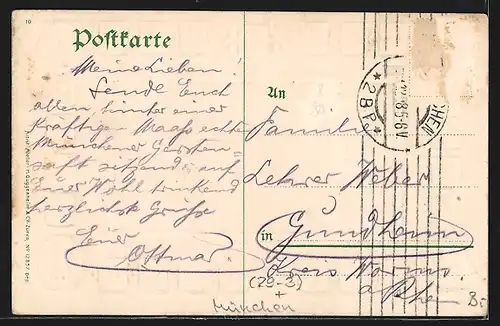 10
Postkarte
Meine Lieben!
Sende Euch
allen hinter einer
kräftigen Maaß echten
Münchener Gersten-
saft sitzend, auf
Euer Wohl trinkend
herzlichste Grüße
Euer
Ottmar.
An
Familie
Lehrer Weber
in Gundheim
Kreis Worms
a. Rhein
(29-3)
+
München
* 2BP *
CHEN